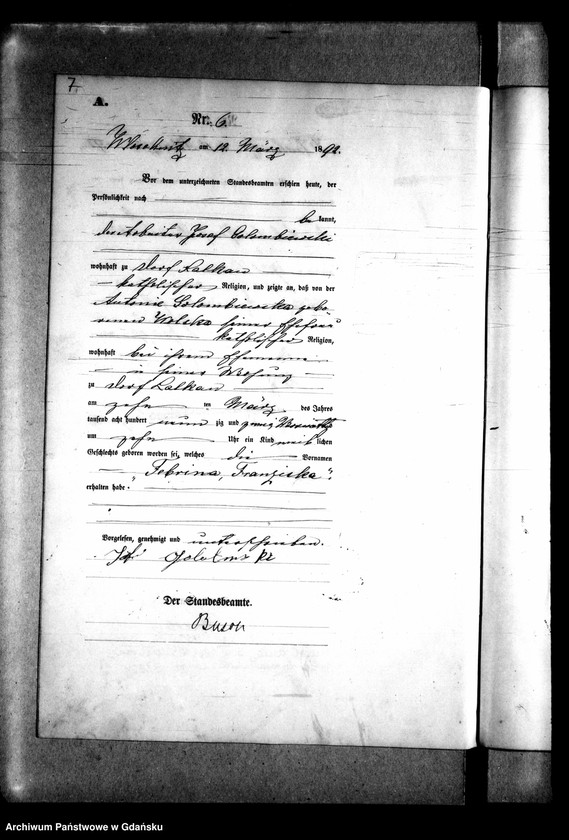 7.
A.
Nr. 6.
am 12. März 1892.
Vor dem unterzeichneten Standesbeamten erschien heute, der
Persönlichkeit nach
be kannt,
den Arbeiter Josef Golombiewski
wohnhaft zu Dorf Lalkau
katholischer Religion, und zeigte an, daß von der
Antonie Golombiewska gebo-
renen seiner Ehefrau
katholischer Religion,
wohnhaft bei ihrem Ehemanne
in seiner Wohnung
zu Dorf Lalkau
am zehn ten März des Jahres
tausend acht hundert neun zig und zwei, Vormittags
um zehn Uhr ein Kind weib lichen
Geschlechts geboren worden sei, welches die Vornamen
"Febrina, Franziska".
erhalten habe.
Vorgelesen, genehmigt und unterschrieben.
Der Standesbeamte.
Archiwum Państwowe w Gdańsku